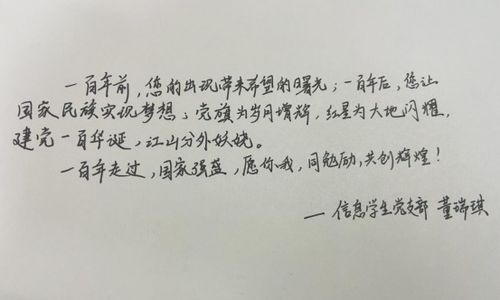 一百年前,您的出现带来希望的曙光;一百年后,您让
国家民族实现梦想。党旗为岁月增辉,红星为大地闪耀,
建党一百华诞,江山分外妖娆。
一百年走过,国家强盛,愿你我,同勉励,共创辉煌!
— 信息学生党支部 董瑞琪